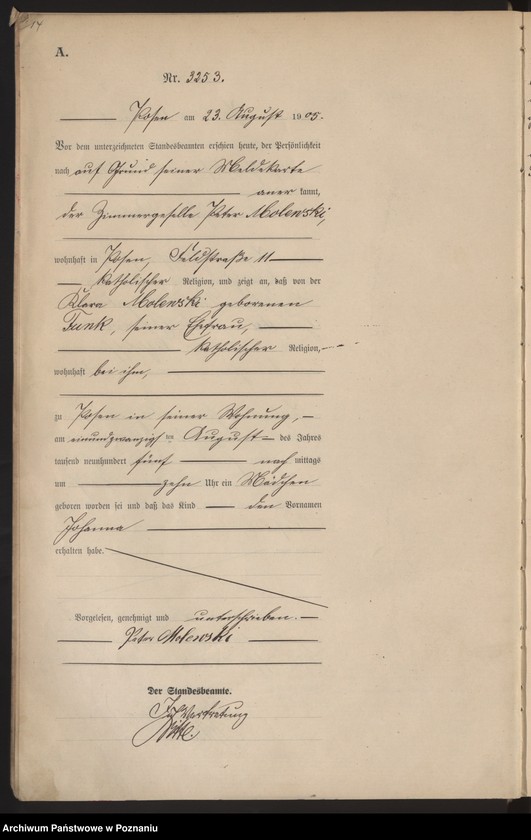 A.
Nr. 3253.
Posen am 23. August 1905.
Vor dem unterzeichneten Standesbeamten erschien heute, der Persönlichkeit
nach auf Grund seiner Meldekarte
anerkannt,
der Zimmergeselle Peter Molewski,
wohnhaft in Posen, Feldstraße 11
katholischer Religion, und zeigt an, daß von der
Klara Molewski geborenen
Funk, seiner Ehefrau,
katholischer Religion,
wohnhaft bei ihm,
zu Posen in seiner Wohnung,
am einundzwanzigsten August des Jahres
tausend neunhundert fünf nachmittags
um zehn Uhr ein Mädchen
geboren worden sei und daß das Kind den Vornamen
Johanna
erhalten habe.
Vorgelesen, genehmigt und unterschrieben.
Peter Molewski
Der Standesbeamte.
In Vertretung
Archiwum Państwowe w Poznaniu